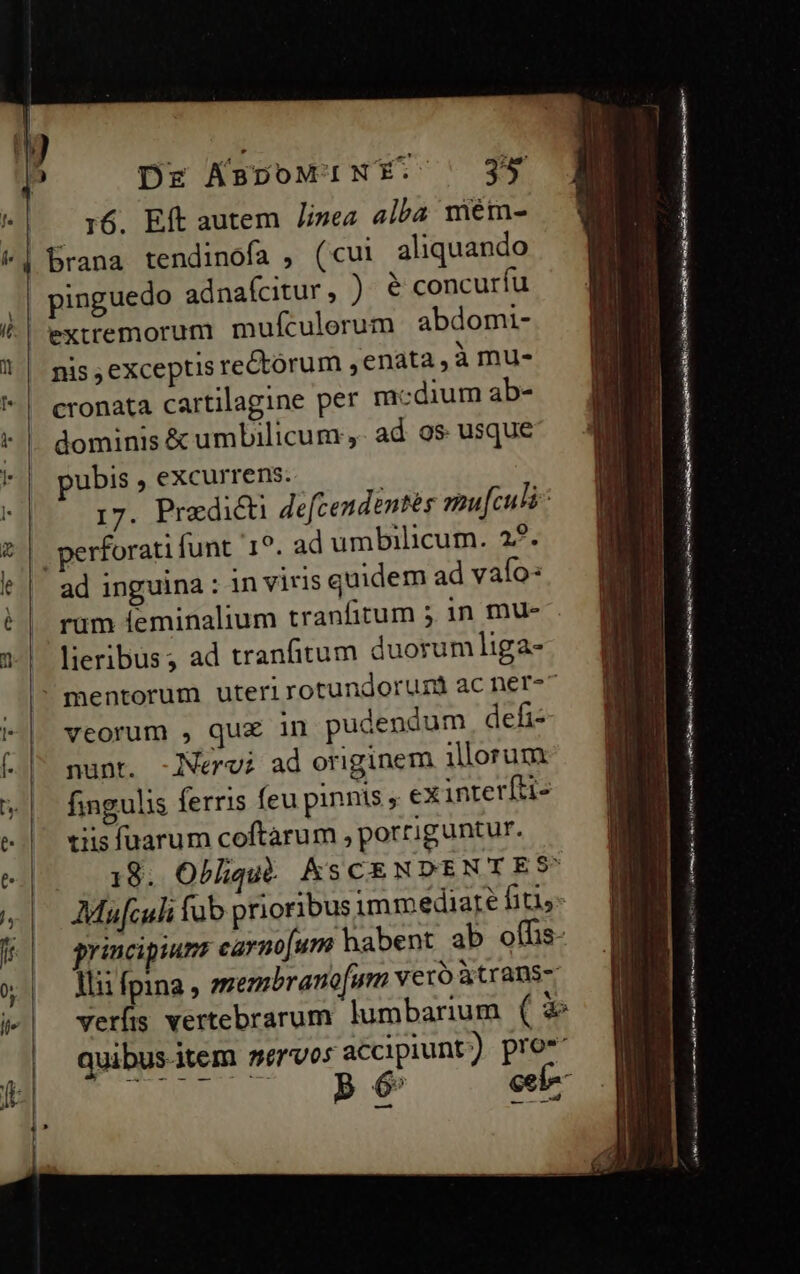 DE ABDOMINE. 35
16. Eſt autem linea alba mem-
brana tendinoſa , (cui aliquando
pinguedo adnaſcitur, ) è concurſu
extremorum muſculorum abdomi-
nis, exceptis rectorum , enata, à mu-
cronata cartilagine per medium ab-
dominis & umbilicum, ad os usque
pubis , excurrens.
17. Prædicti deſcendentes muſculi
perforati ſunt 1º. ad umbilicum. 2º.
ad inguina : in viris quidem ad vaſo-
rum ſeminalium tranſitum ; in mu-
lieribus, ad tranſitum duorum liga-
mentorum uteri rotundorum ac ner-
veorum , quæ in pudendum deſi-
nunt. Nervi ad originem illorum
ſingulis ferris ſeu pinnis, ex interſti-
tiis ſuarum coſtarum , porriguntur.
18. Obliquè ASCENDENTES
Muſculi ſub prioribus immediatè ſiti,
principium carnoſum habent ab oſſis
Ilii ſpina , membranoſum verò à trans-
verſis vertebrarum lumbarium ( à
quibus item nervos accipiunt) pro-
B 6 ceſ-